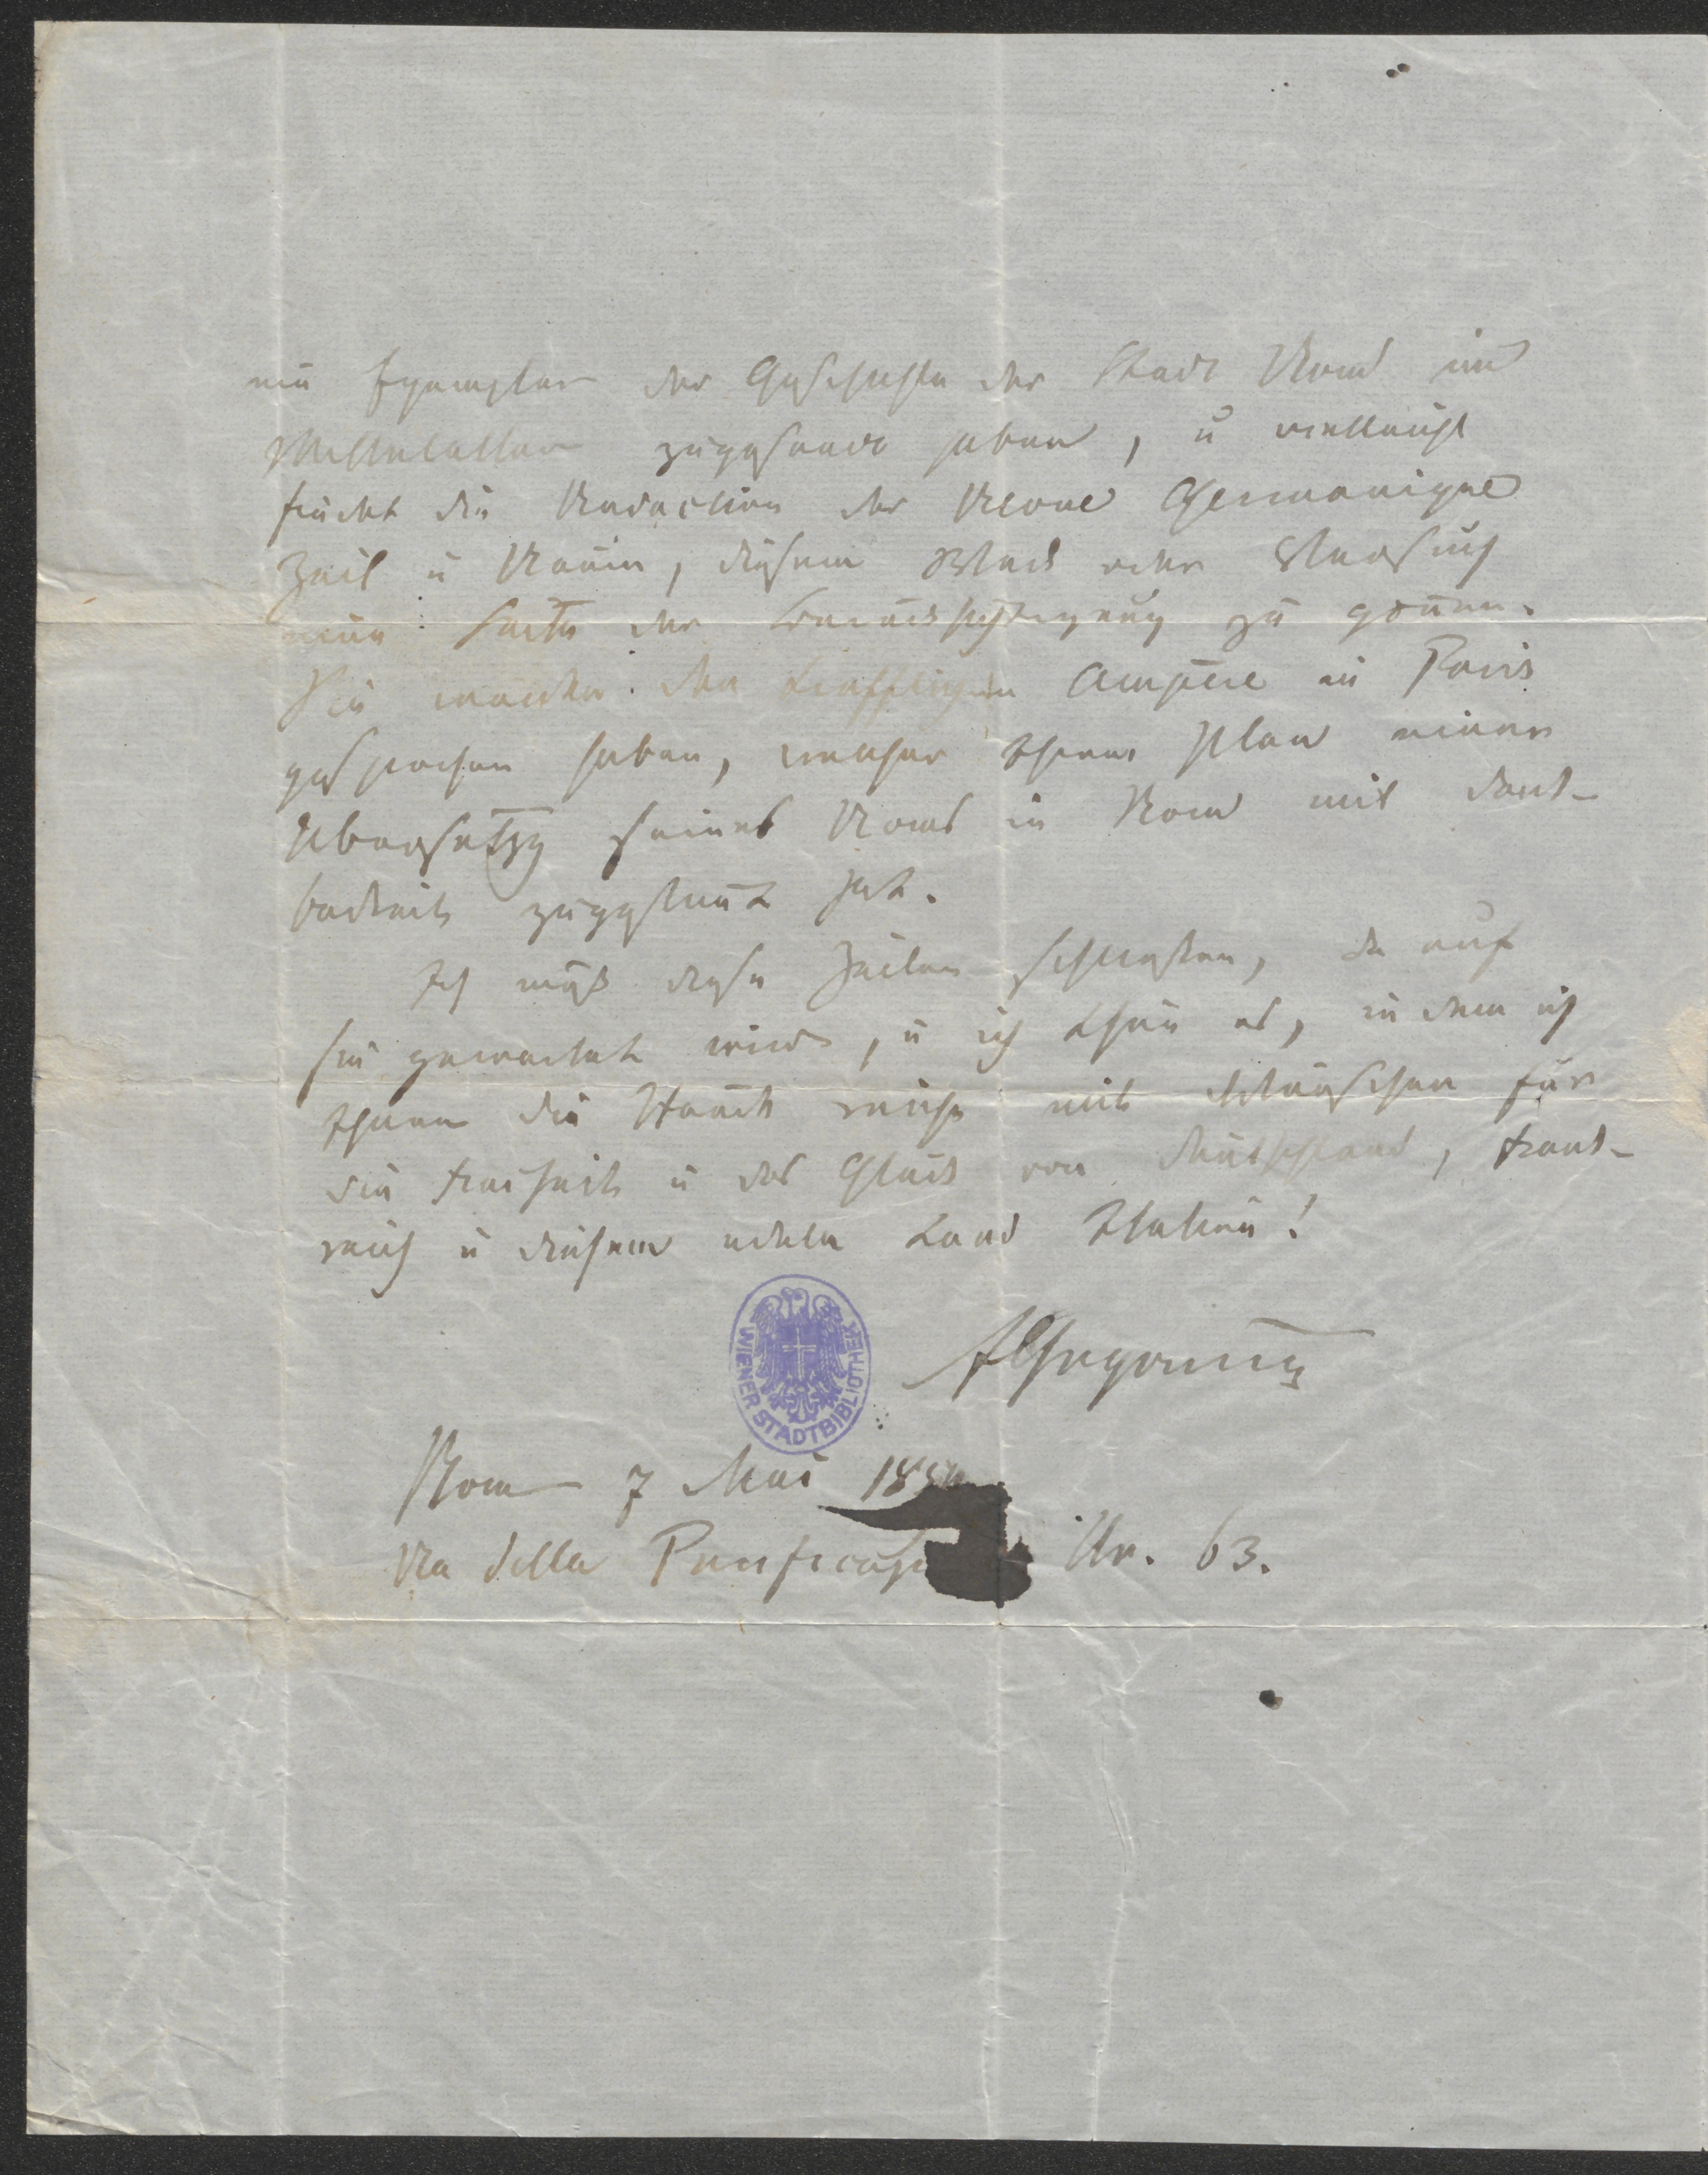 ein Exemplar der Geschichte der Stadt Rom im
Mittelalter zugesandt haben, u vielleicht
findet die Redaction der Revue Germanique
Zeit u Raum, diesem Werk oder Versuch
eine Seite der Berücksichtigung zu gönnen.
Sie werden den trefflichen Ampère in Paris
gesprochen haben, welcher Ihrem Plan einer
Übersetzg seines Roms in Rom mit Dank-
barkeit zugestimt hat.
Ich muß diese Zeilen schließen, da auf
sie gewartet wird, u ich thue es, in dem ich
Ihnen die Hände reiche mit Wünschen für
die Freiheit u das Glück von Deutschland, Frank-
reich u diesem edeln Land Italien!
WIENER STADTBIBLIOTHEK
FGregorovius
Rom 7 Mai 185
Via della Purificazi Nr. 63.